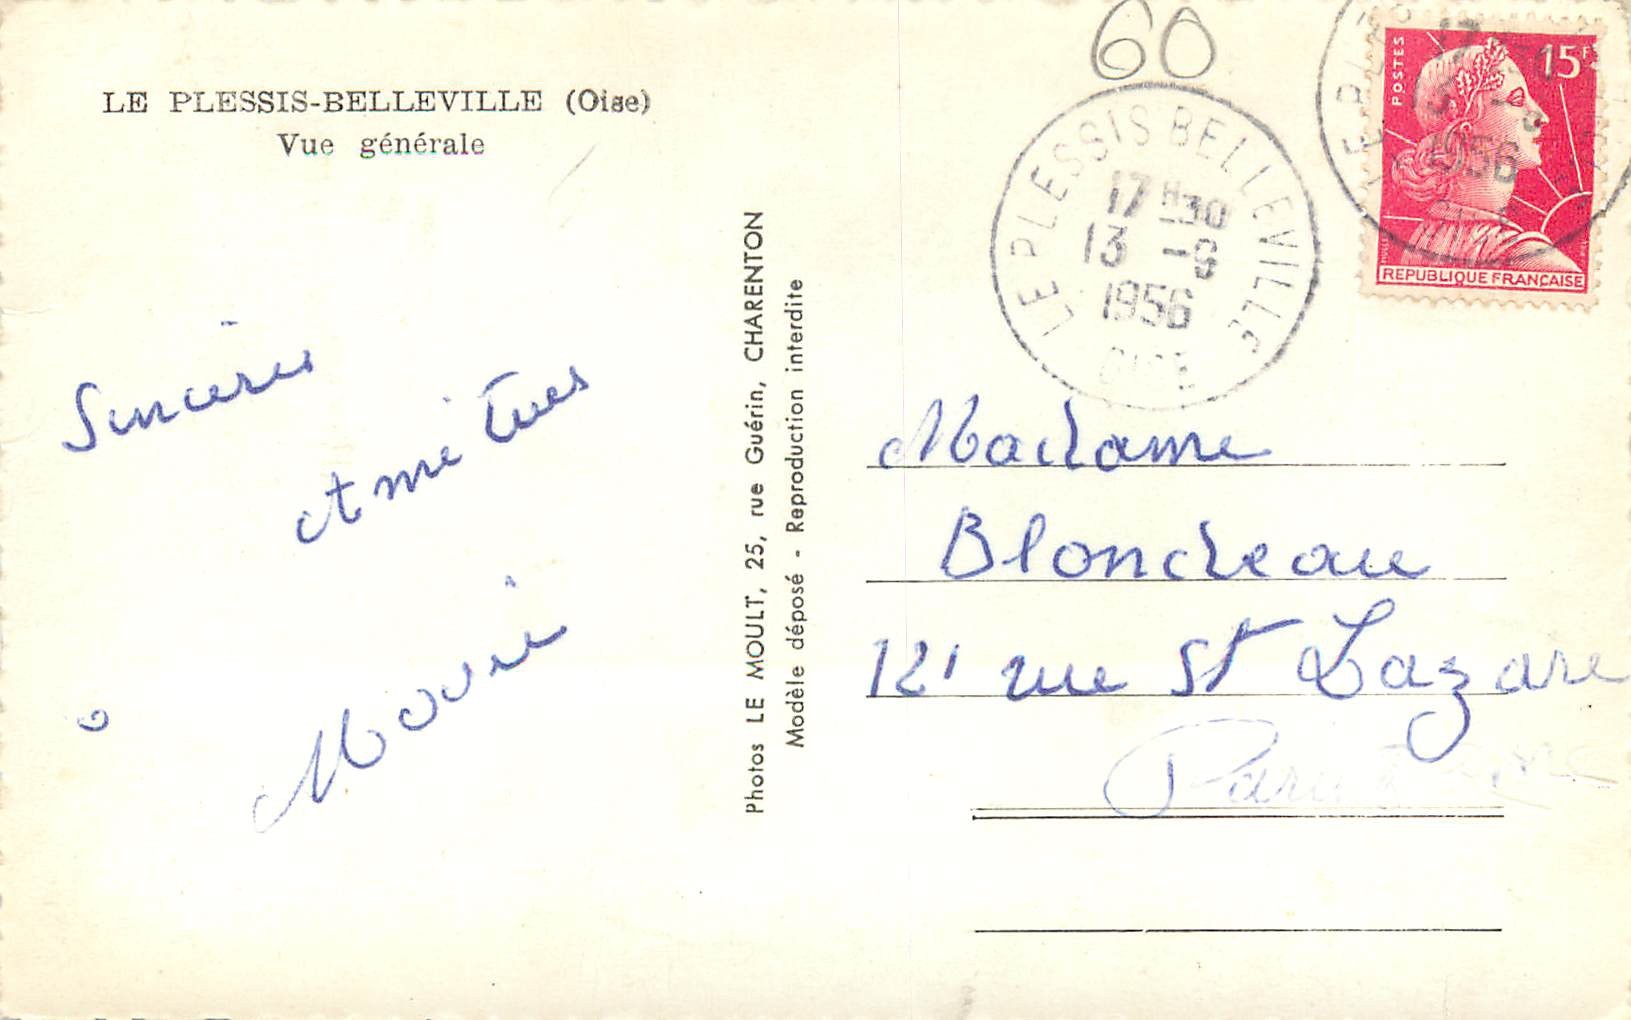 LE PLESSIS-BELLEVILLE (Oise)
Vue générale
Sincères
Amitiés
Photos LE MOULT, 25, rue Guérin, CHARENTON
Modèle déposé - Reproduction interdite
60
LE PLESSIS BELLEVILLE
17H30
13 -9
1956
OISE
POSTES
15F
1956
REPUBLIQUE FRANÇAISE
Madame
Blondeau
121 rue St Lazare
Paris